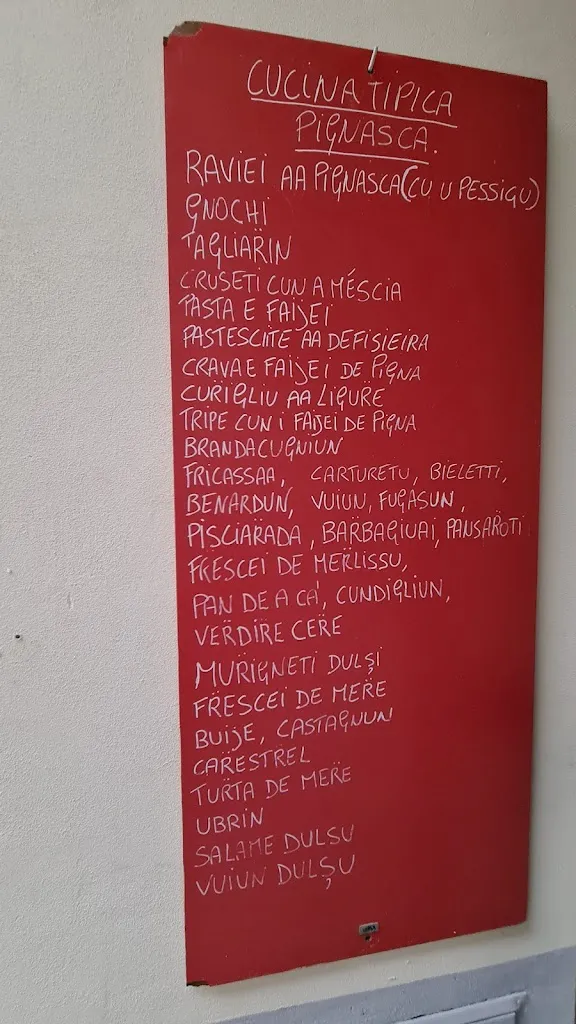 CUCINA TIPICA
PIGNASCA.
RAVIEI AA PIGNASCA (CU U PESSIGU)
GNOCHI
TAGLIAR̈IN
CRUSETI CUN A MÉSCIA
PASTA E FAIJEI
PASTESCIITE AA DEFISIEIRA
CRAVA E FAIJEI DE PIGNA
CURIGLIU AA LIGURE
TRIPE CUN I FAIJEI DE PIGNA
BRANDACUGNIUN
FRICASSAA, CARTURETU, BIELETTI,
BENARDUN, VUIUN, FUGASUN,
PISCIAR̈ADA, BARBAGIUAI, PANSAR̈OTI
FRESCEI DE MER̈LISSU,
PAN DE A CÀ, CUNDIGLIUN,
VERDIR̈E CER̈E
MUR̈IGNETI DULŞI
FRESCEI DE MER̈E
BUIJE, CASTAGNUN
CAR̈ESTREL
TURTA DE MER̈E
UBRIN
SALAME DULSU
VUIUN DULŞU